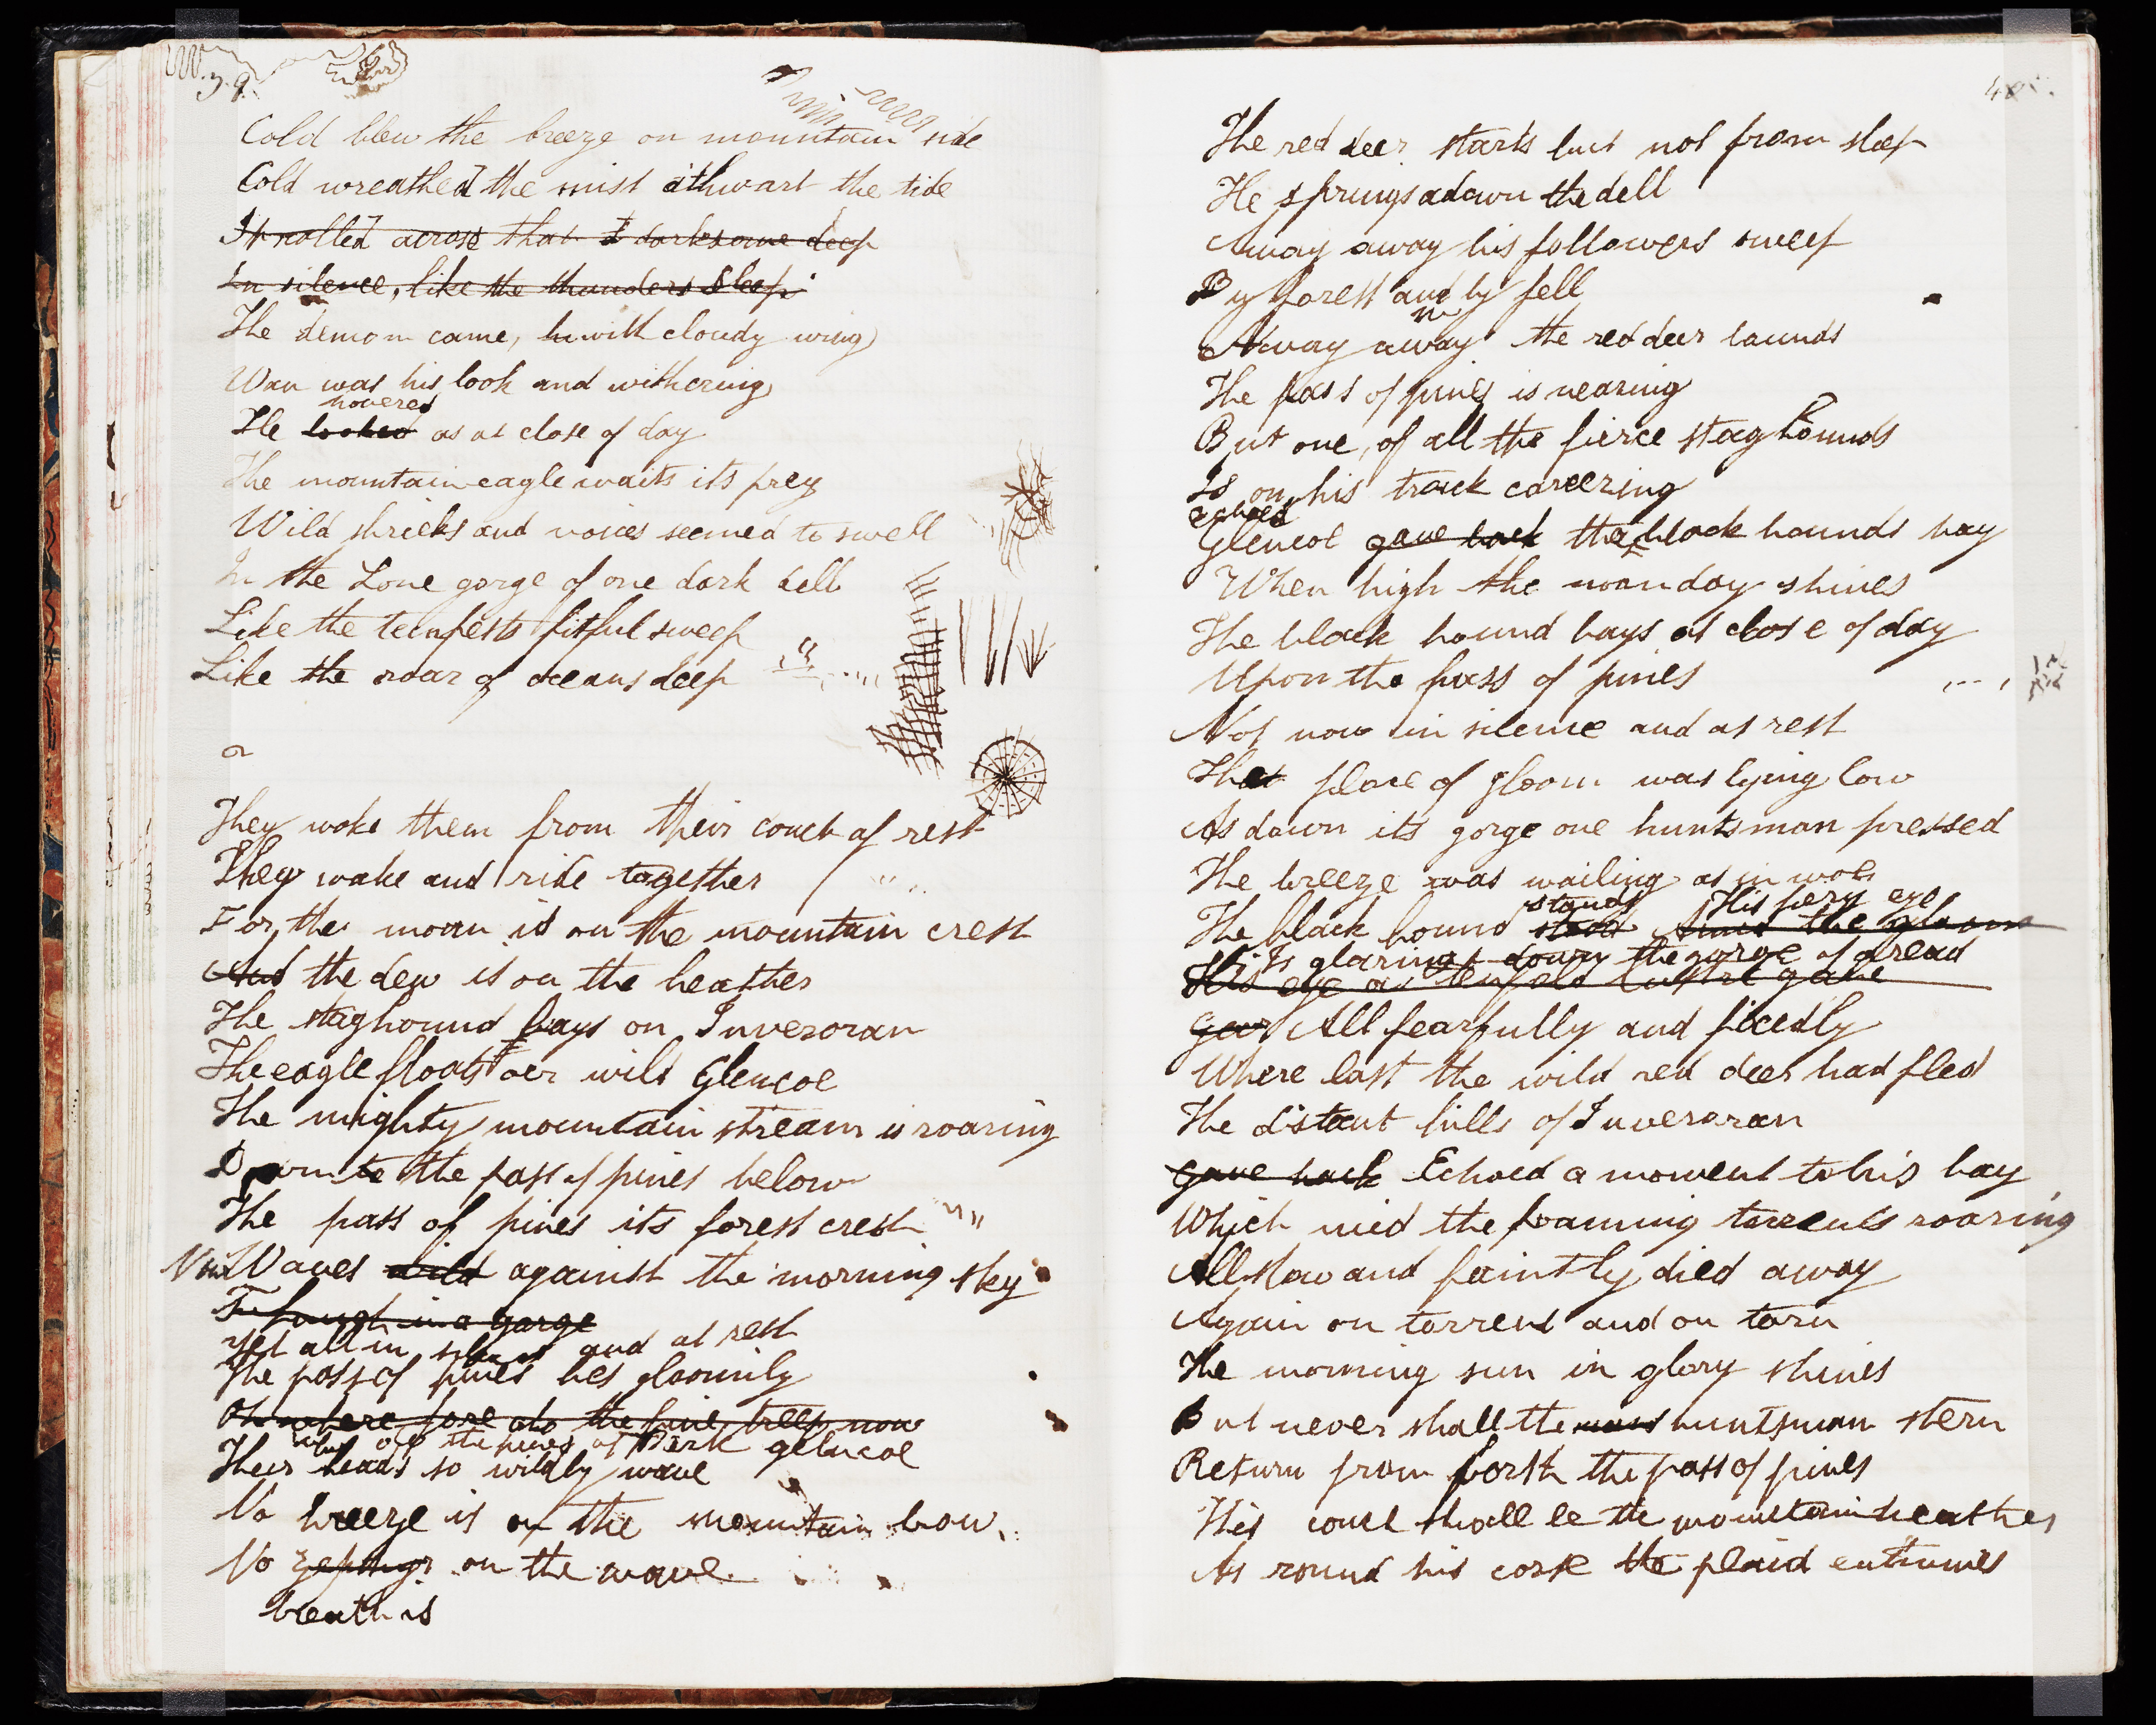 39.
Cold blew the breeze on mountain side
Cold wreathed the mist athwart the tide
It rolled across that darksome deep
In silence, like the thunders sleep.
The demon came, with cloudy wing
Wan was his look and withering
hovered
He looked as at close of day
The mountain eagle waits its prey
Wild shrieks and voices seemed to swell
In the Lone gorge of one dark dell
Like the tempests fitful sweep
Like the roar of oceans deep
They woke them from their couch of rest
They wake and ride together
For the moon is on the mountain crest
And the dew is on the heather
The staghound bays on Inveroran
The eagle floats oer wild Glencoe
The mighty mountain stream is roaring
Down to the pass of pines below
The pass of pines its forest crest
Waves wild against the morning sky
Though in a gorge
Yet all in silence and at rest
The pass of pines lies gloomily
Oh wherefore do the pine trees now
why do the pines of Dark glencoe
Their heads so wildly wave
No breeze is on the mountain brow.
No zephyr on the wave
breath is
40.
The red deer starts but not from sleep
He springs adown the dell
Away away his followers sweep
By forest and by fell
Away away the red deer bounds
The pass of pines is nearing
But one, of all the fierce stag hounds
Is on his track careering
echoed
Glencoe gave back the black hounds bay
When high the noonday shines
The black hound bays at close of day
Upon the pass of pines
Not now in silence and at rest
That place of gloom was lying low
As down its gorge one huntsman pressed
The breeze was wailing as in woe
stands His fiery eye
The black hound stood Amid the gloom
Is glaring down the gorge of dread
His eye a tenfold lustre gave
All fearfully and fixedly
Where last the wild red deer had fled
The distant hills of Inveroran
gave back Echoed a moment to his bay
Which mid the foaming torrents roaring
All slow and faintly died away
Again on torrent and on tarn
The morning sun in glory shines
But never shall the huntsman stern
Return from forth the pass of pines
His couch shall be the mountain heather
As round his corse the plaid entwines